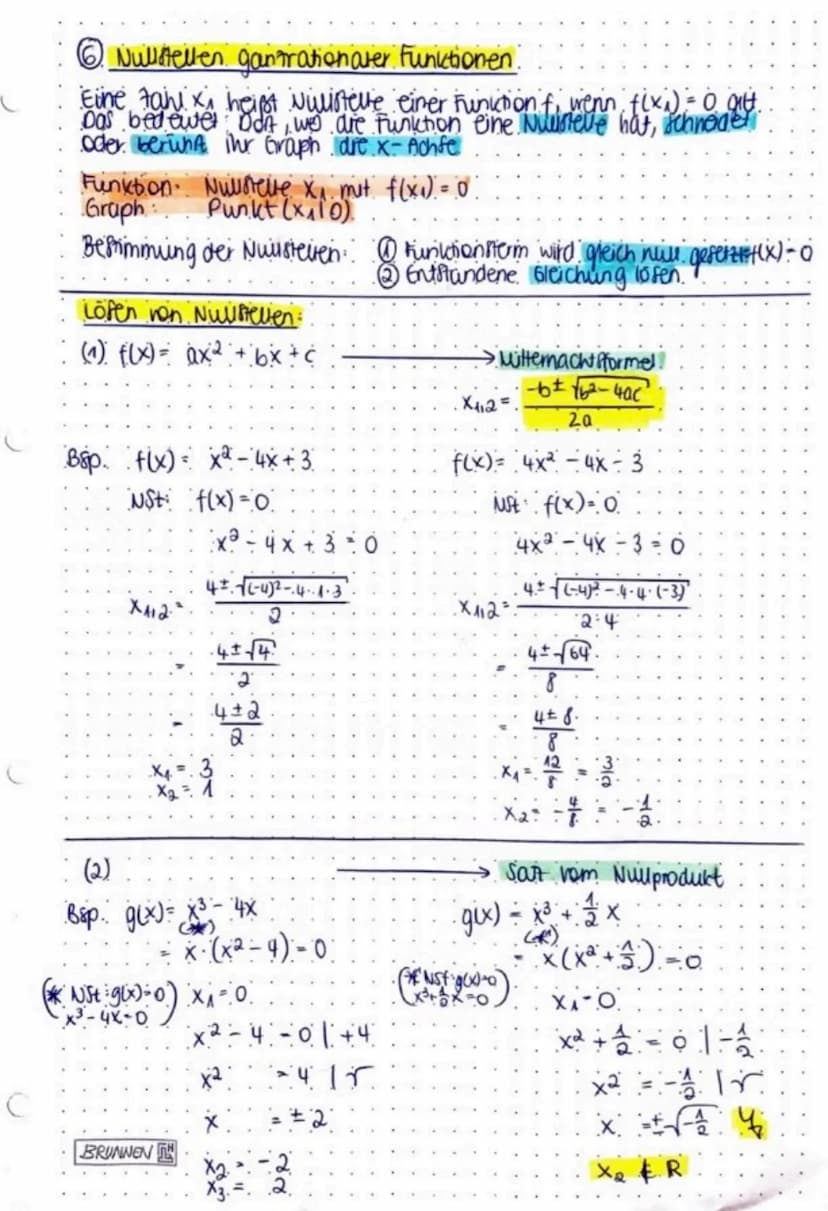 ⑥ Nullstellen ganzrationaler Funktionen
Eine Zahl x₁ heißt Nullstelle einer Funktion f, wenn f(x₁) = 0 gilt.
Das bedeutet: Dort, wo die Funktion eine Nullstelle hat, schneidet
oder berührt ihr Graph die x-Achse
Funktion: Nullstelle x₁ mit f(x₁) = 0
Graph: Punkt (x₁|0)
Bestimmung der Nullstellen: ① Funktionsterm wird gleich null gesetzt f(x) = 0
② Entstandene Gleichung lösen.
Lösen von Nullstellen:
(1) f(x) = ax² + bx + c → Mitternachtsformel:
x₁,₂ = (-b ± √(b² - 4ac)) / 2a
Bsp. f(x) = x² - 4x + 3
NSt: f(x) = 0
x² - 4x + 3 = 0
x₁,₂ = (4 ± √((-4)² - 4·1·3)) / 2
= (4 ± √4) / 2
= (4 ± 2) / 2
x₁ = 3
x₂ = 1
f(x) = 4x² - 4x - 3
NSt: f(x) = 0
4x² - 4x - 3 = 0
x₁,₂ = (4 ± √((-4)² - 4·4·(-3))) / 2·4
= (4 ± √64) / 8
= (4 ± 8) / 8
x₁ = 12/8 = 3/2
x₂ = -4/8 = -1/2
(2) → Satz vom Nullprodukt
Bsp. g(x) = x³ - 4x
(*)
= x·(x² - 4) = 0
(* NSt: g(x) = 0
x³ - 4x = 0)
x₁ = 0
x² - 4 = 0 | +4
x² = 4 | √
x = ± 2
x₂ = -2
x₃ = 2
g(x) = x³ + 1/2 x
(*)
= x(x² + 1/2) = 0
(* NSt: g(x) = 0
x³ + 1/2 x = 0)
x₁ = 0
x² + 1/2 = 0 | -1/2
x² = -1/2 | √
x = ± √(-1/2) ↯
x₂ ∉ R
BRUNNEN